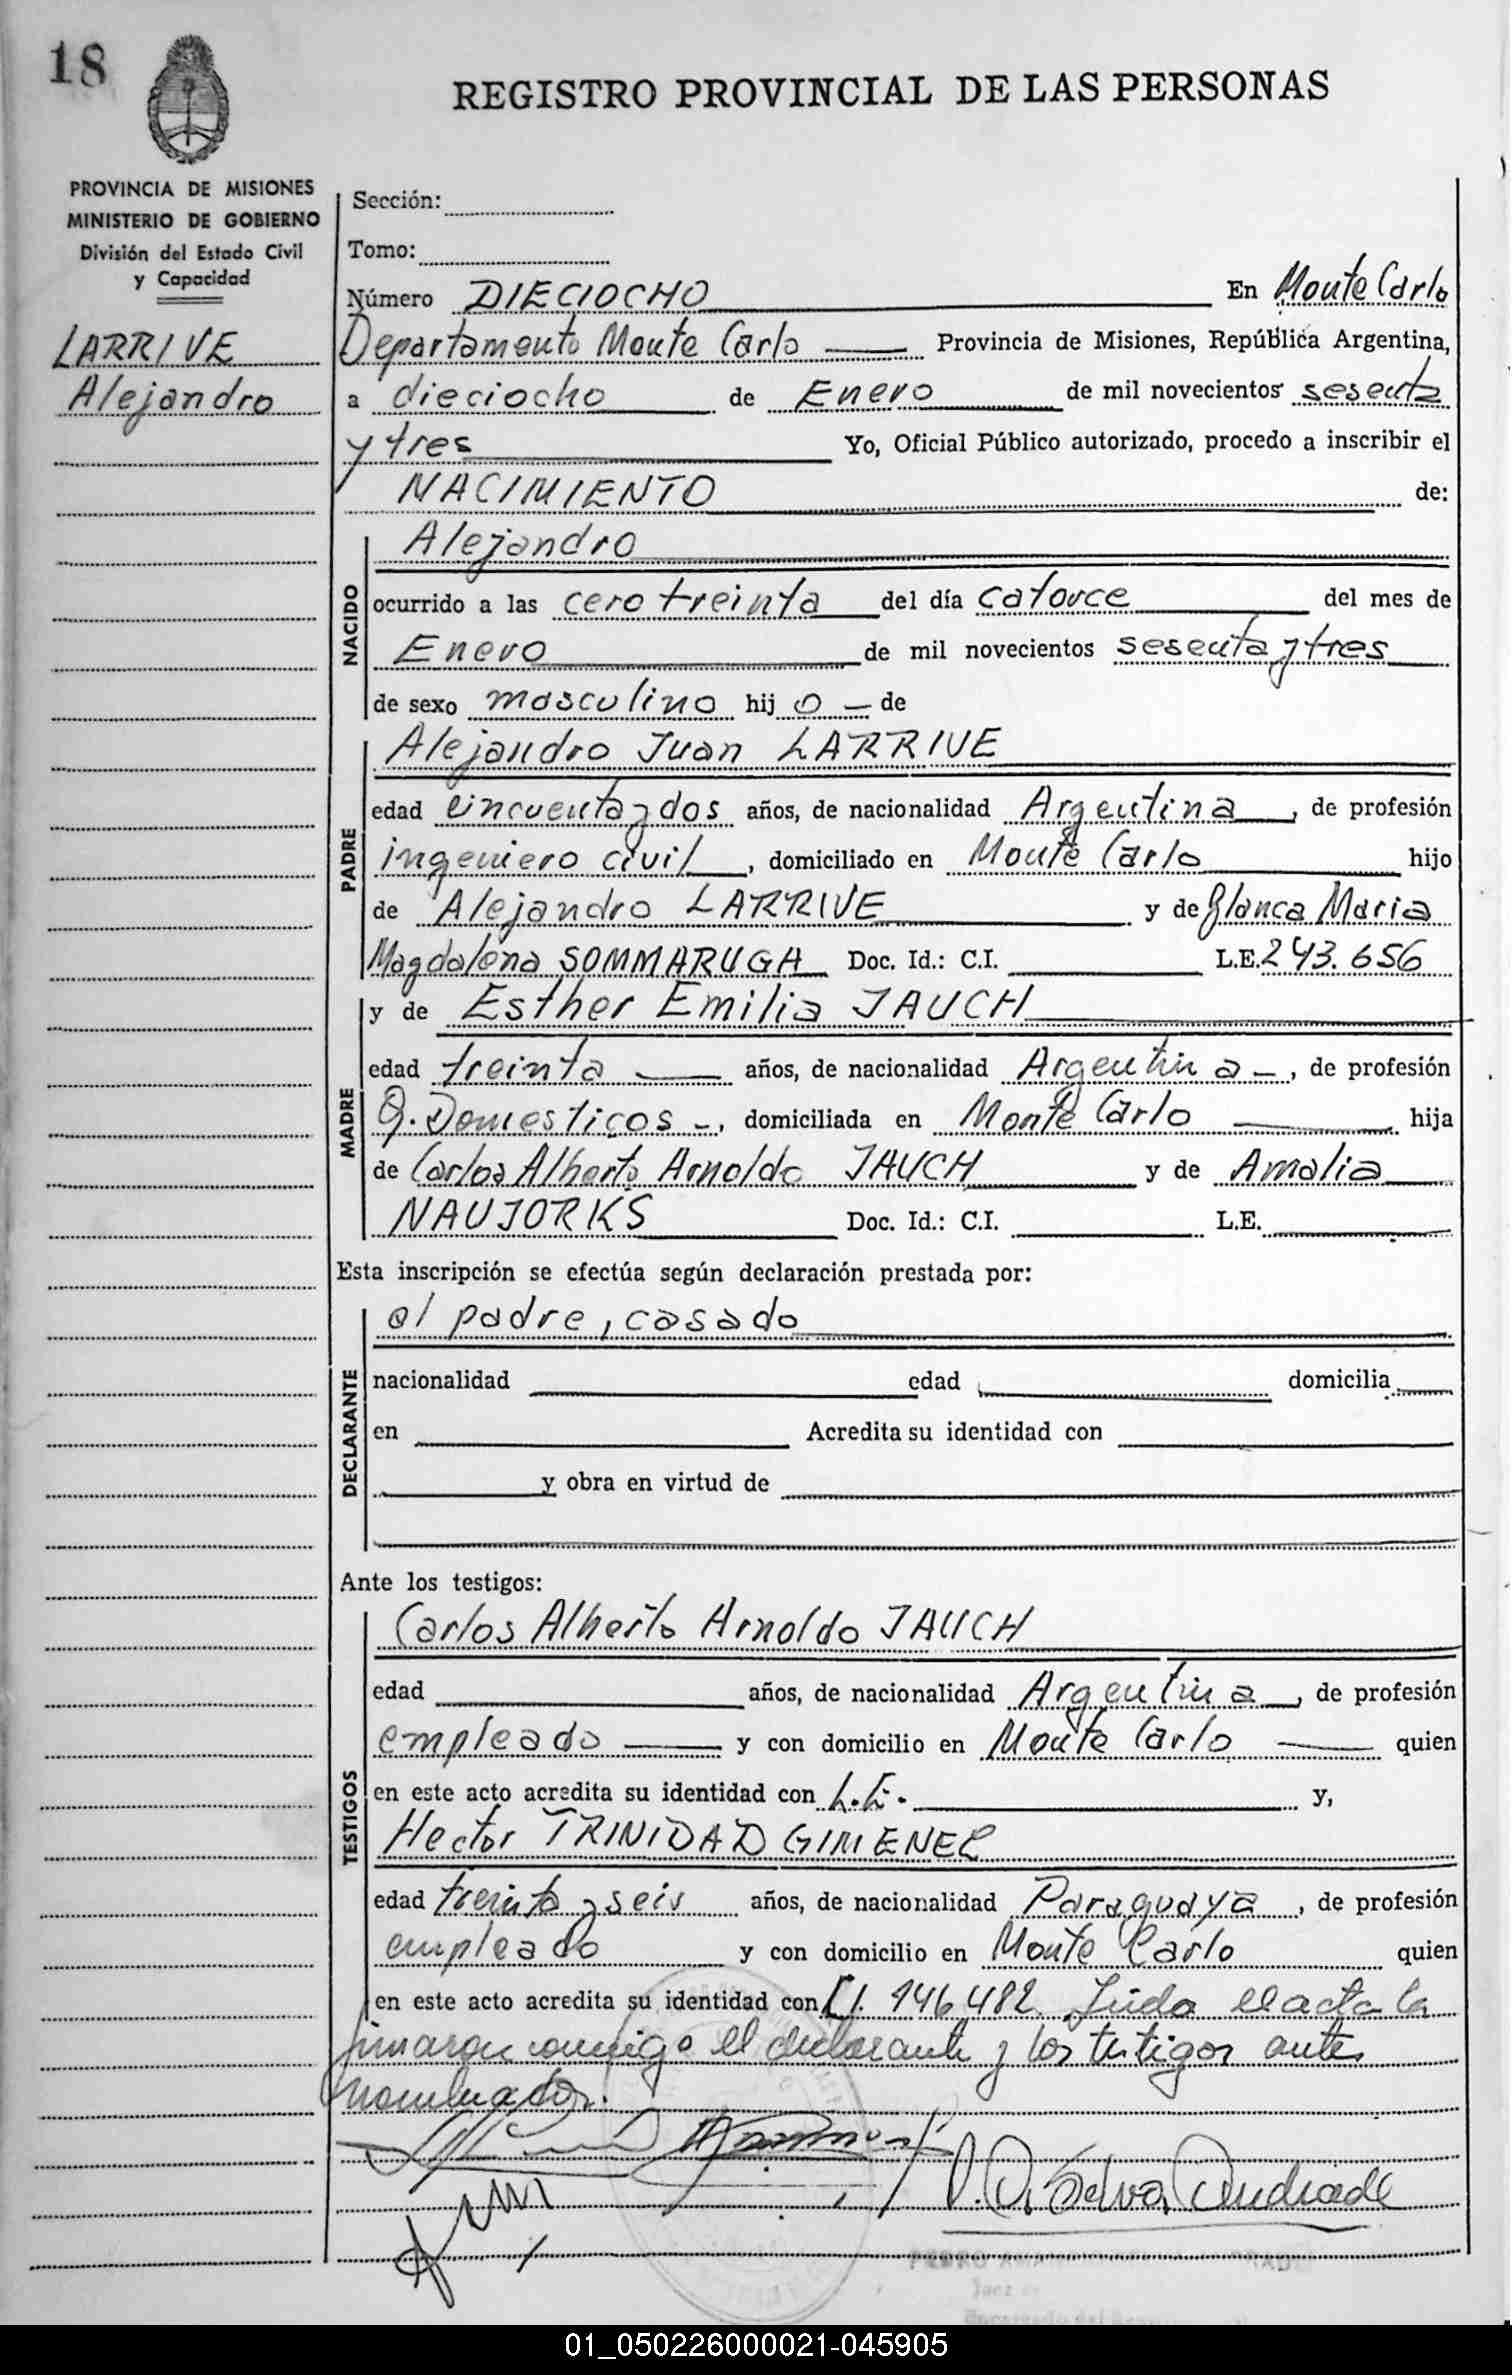 18
REGISTRO PROVINCIAL DE LAS PERSONAS
PROVINCIA DE MISIONES
MINISTERIO DE GOBIERNO
División del Estado Civil
y Capacidad
LARRIVE
Alejandro
Sección:
Tomo:
Número DIECIOCHO En Monte Carlo
Departamento Monte Carlo Provincia de Misiones, República Argentina,
a dieciocho de Enero de mil novecientos sesenta
y tres Yo, Oficial Público autorizado, procedo a inscribir el
NACIMIENTO de:
NACIDO
Alejandro
ocurrido a las cero treinta del día catorce del mes de
Enero de mil novecientos sesenta y tres
de sexo masculino hij o de
PADRE
Alejandro Juan LARRIVE
edad cincuenta y dos años, de nacionalidad Argentina, de profesión
ingeniero civil, domiciliado en Monte Carlo hijo
de Alejandro LARRIVE y de Blanca Maria
Magdalena SOMMARUGA Doc. Id.: C.I. L.E. 243.656
MADRE
y de Esther Emilia JAUCH
edad treinta años, de nacionalidad Argentina, de profesión
Q. Domesticos, domiciliada en Monte Carlo hija
de Carlos Alberto Arnoldo JAUCH y de Amalia
NAUJORKS Doc. Id.: C.I. L.E.
Esta inscripción se efectúa según declaración prestada por:
DECLARANTE
el padre, casado
nacionalidad edad domicilia
en Acredita su identidad con
y obra en virtud de
Ante los testigos:
TESTIGOS
Carlos Alberto Arnoldo JAUCH
edad años, de nacionalidad Argentina, de profesión
empleado y con domicilio en Monte Carlo quien
en este acto acredita su identidad con L.E. y,
Hector TRINIDAD GIMENEZ
edad treinta y seis años, de nacionalidad Paraguaya, de profesión
empleado y con domicilio en Monte Carlo quien
en este acto acredita su identidad con C.I. 146.482. Leída el acta la
firmaron conmigo el declarante y los testigos antes
nombrados.
P. A. Selva Andrade
PEDRO
Juez
01_050226000021-045905